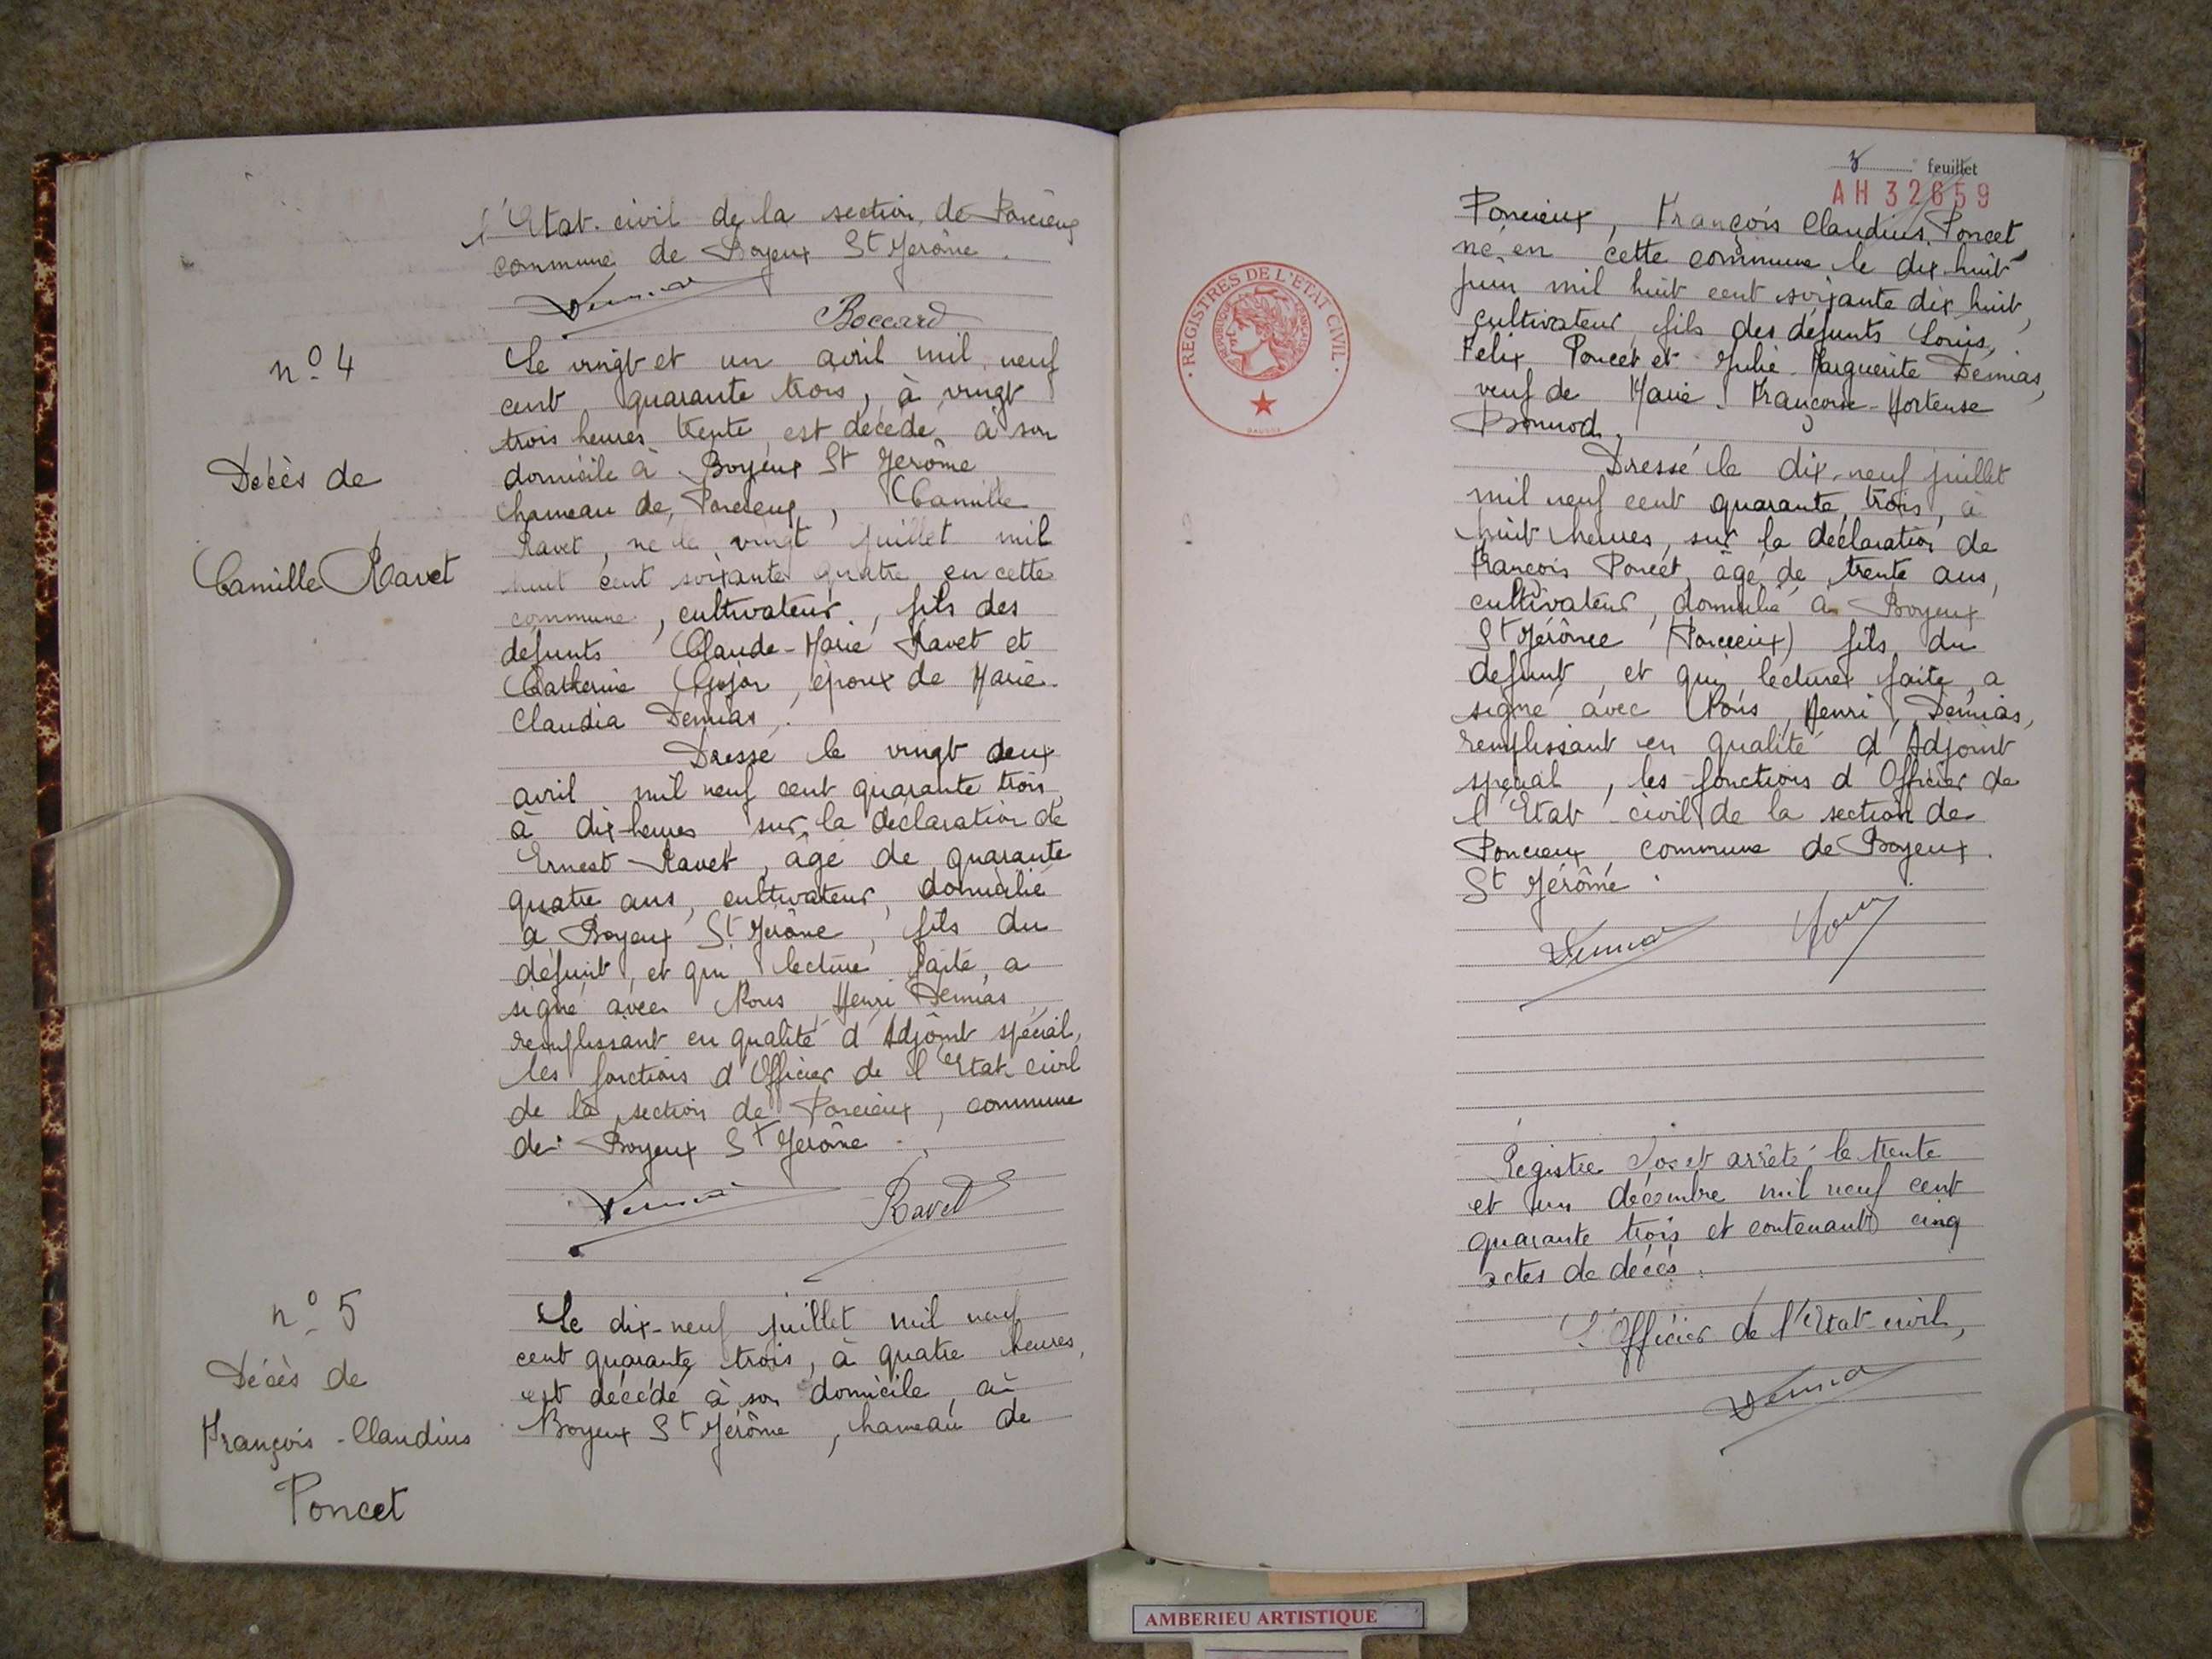 l'Etat-civil de la section de Poncieux
commune de Boyeux St Jérôme.
Boccard
n° 4
Décès de
Camille Ravet
Le vingt et un avril mil neuf
cent quarante trois, à vingt
trois heures trente est décédé à son
domicile à Boyeux St Jerôme
hameau de Poncieux, Camille
Ravet, né le vingt juillet mil
huit cent soixante quatre en cette
commune, cultivateur, fils des
défunts Claude-Marie Ravet et
Catherine, époux de Marie
Claudia Demias.
Dressé le vingt deux
avril mil neuf cent quarante trois,
à dix-heures sur la déclaration de
Ernest Ravet, âgé de quarante
quatre ans, cultivateur, domicilié
à Boyeux St Jérôme, fils du
défunt, et qui lecture faite, a
signé avec Nous, Henri Demias,
remplissant en qualité d'Adjoint spécial,
les fonctions d'Officier de l'Etat-civil
de la section de Poncieux, commune
de Boyeux St Jerôme.
Ravet
n° 5
Décès de
François-Claudius
Poncet
Le dix-neuf juillet mil neuf
cent quarante trois, à quatre heures,
est décédé à son domicile à
Boyeux St Jérôme, hameau de
feuillet
AH 32659
REGISTRES DE L'ETAT CIVIL
Poncieux, François Claudius Poncet,
né en cette commune le dix-huit
juin mil huit cent soixante dix huit,
cultivateur, fils des défunts Louis,
Felix Poncet et Julie-Marguerite Demias,
veuf de Marie-Françoise-Hortense
Bonnod.
Dressé le dix-neuf juillet
mil neuf cent quarante trois, à
huit heures, sur la déclaration de
François Poncet, âgé de trente ans,
cultivateur, domicilié à Boyeux
St Jérôme (Poncieux) fils du
défunt, et qui, lecture faite, a
signé avec Nous, Henri Demias,
remplissant en qualité d'Adjoint
spécial, les fonctions d'Officier de
l'Etat-civil de la section de
Poncieux, commune de Boyeux
St Jérôme.
Registre clos et arrêté le trente
et un décembre mil neuf cent
quarante trois et contenant cinq
actes de décès.
L'Officier de l'Etat-civil,
AMBERIEU ARTISTIQUE